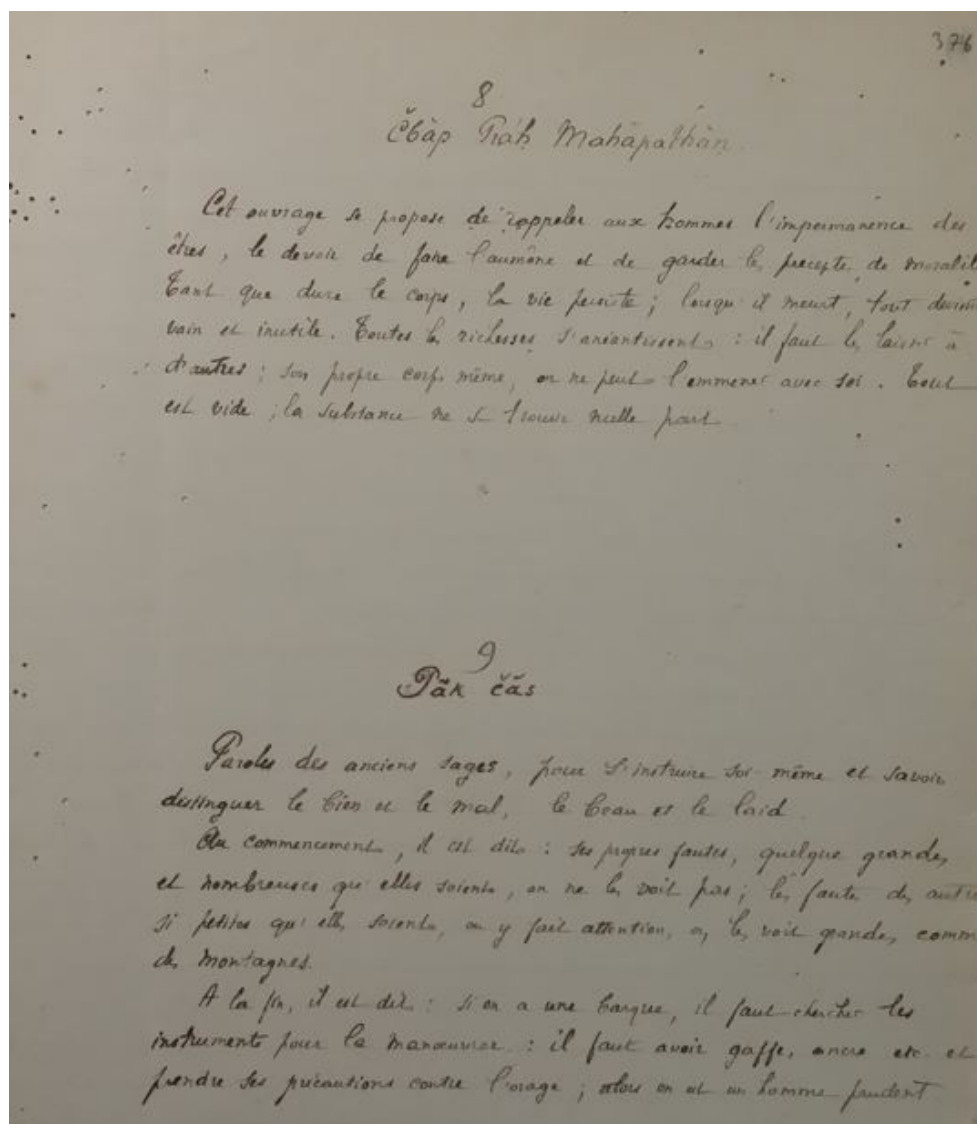 376
8
Čbàp Práh Mahāpathàn.
Cet ouvrage se propose de rappeler aux hommes l'impermanence des
êtres, le devoir de faire l'aumône et de garder les préceptes de moralit
Tant que dure le corps, la vie persiste ; lorsqu'il meurt, tout devient
vain et inutile. Toutes les richesses s'anéantissent : il faut les laisser à
d'autres ; son propre corps même, on ne peut l'emmener avec soi. Tout
est vide ; la substance ne se trouve nulle part
9
Păk čăs
Paroles des anciens sages, pour s'instruire soi-même et savoir
distinguer le bien et le mal, le beau et le laid.
Au commencement, il est dit : ses propres fautes, quelque grandes
et nombreuses qu'elles soient, on ne les voit pas ; les fautes des autres
si petites qu'elles soient, on y fait attention, on les voit grandes comm
des montagnes.
A la fin, il est dit : si on a une barque, il faut chercher les
instruments pour la manœuvrer : il faut avoir gaffe, ancre etc. et
prendre ses précautions contre l'orage ; alors on est un homme prudent